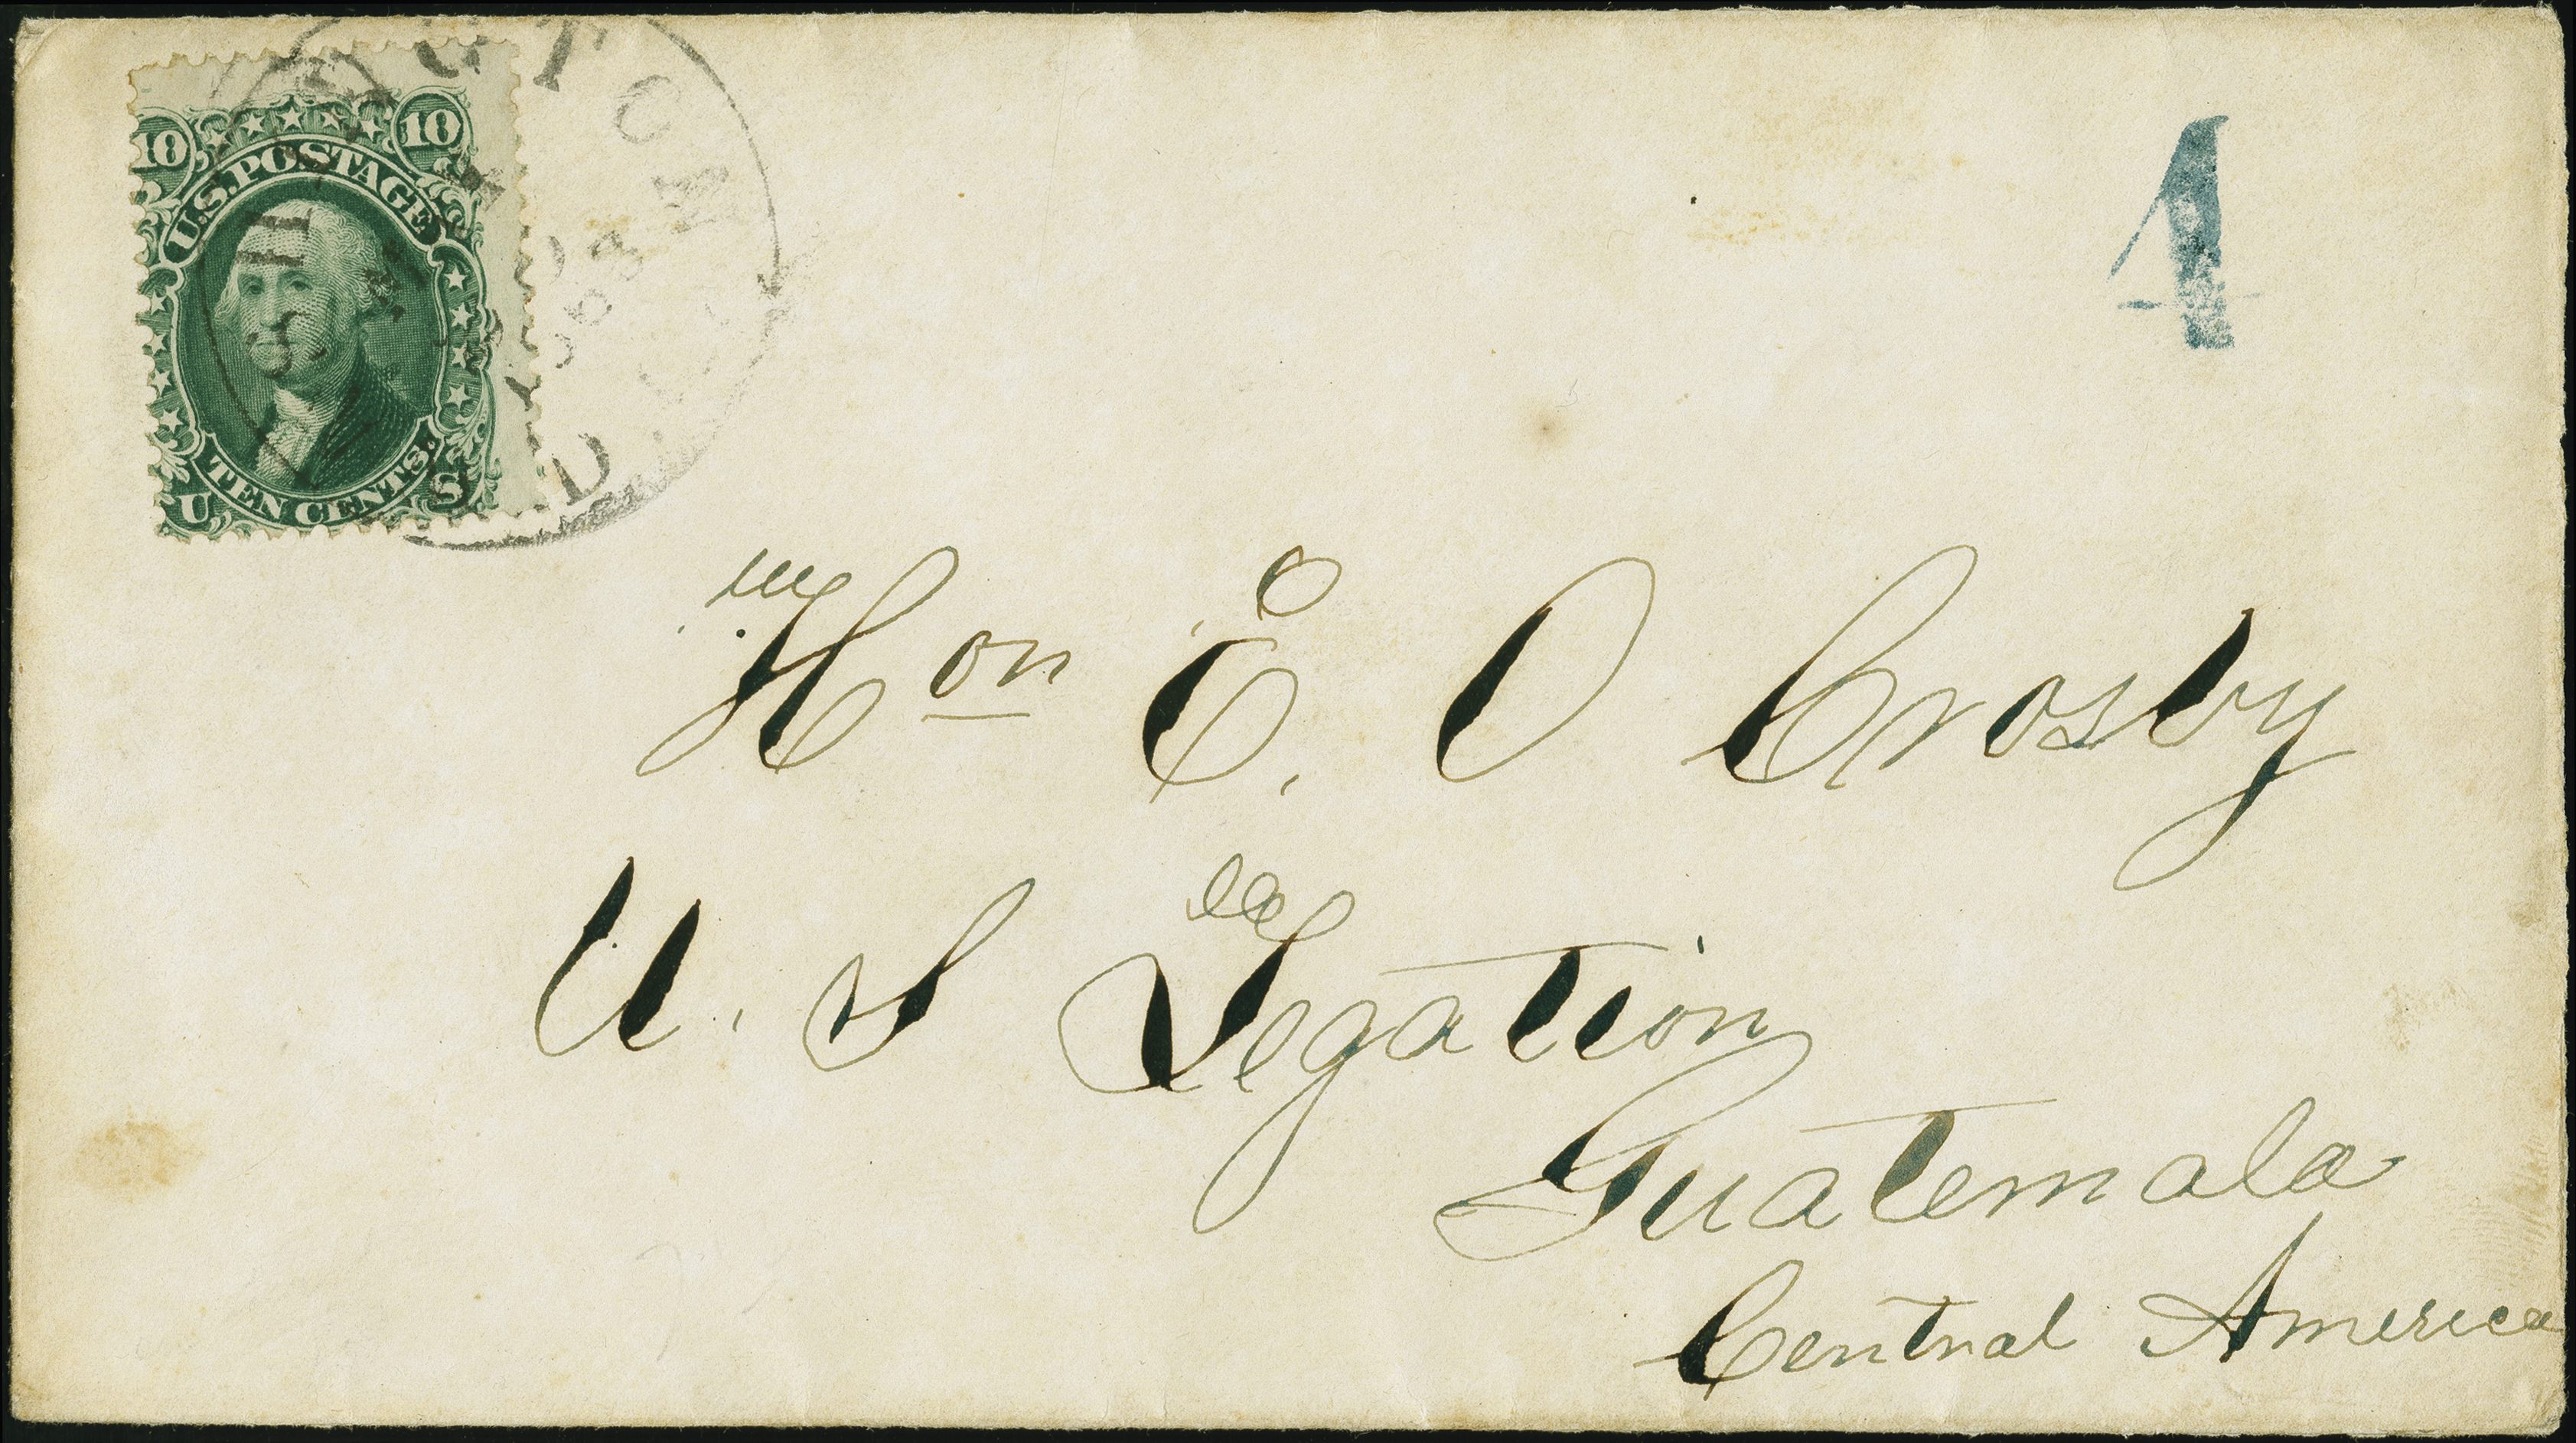 10 10
U.S. POSTAGE
TEN CENTS.
U S
4
Hon E. O Crosby
U. S Legation
Guatemala
Central America